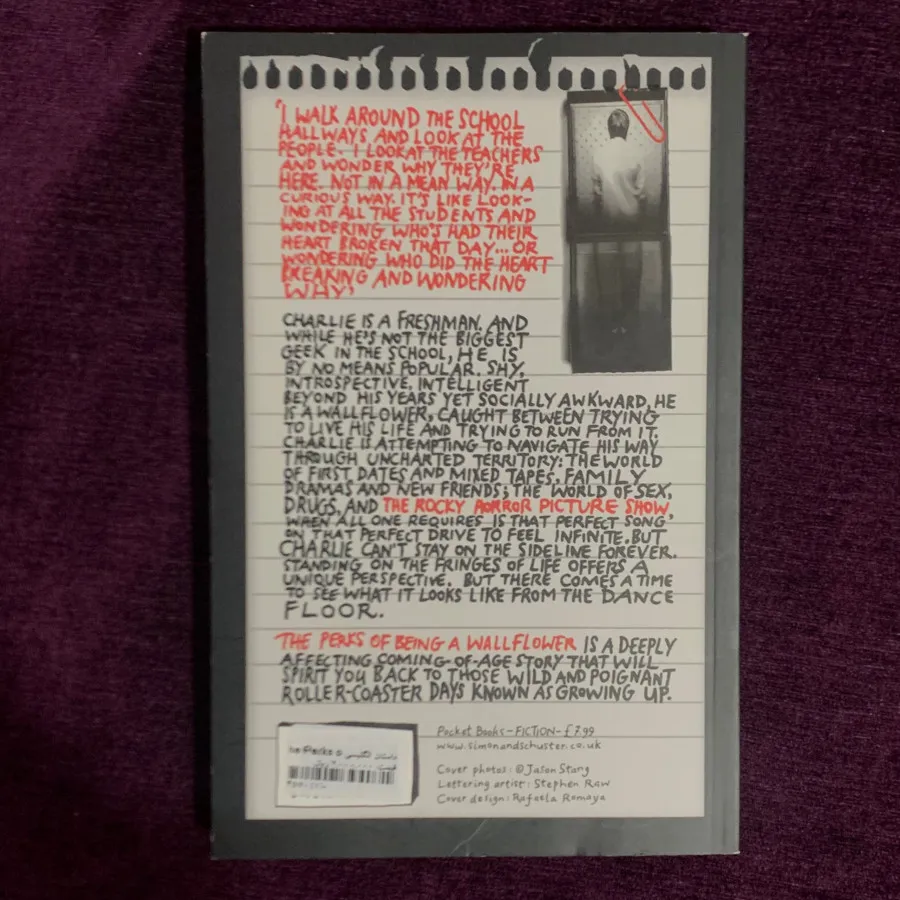 'I WALK AROUND THE SCHOOL
HALLWAYS AND LOOK AT THE
PEOPLE. I LOOK AT THE TEACHERS
AND WONDER WHY THEY'RE
HERE. NOT IN A MEAN WAY. IN A
CURIOUS WAY. IT'S LIKE LOOK-
ING AT ALL THE STUDENTS AND
WONDERING WHO'S HAD THEIR
HEART BROKEN THAT DAY... OR
WONDERING WHO DID THE HEART
BREAKING AND WONDERING
WHY'
CHARLIE IS A FRESHMAN. AND
WHILE HE'S NOT THE BIGGEST
GEEK IN THE SCHOOL, HE IS
BY NO MEANS POPULAR. SHY,
INTROSPECTIVE, INTELLIGENT
BEYOND HIS YEARS YET SOCIALLY AWKWARD, HE
IS A WALLFLOWER, CAUGHT BETWEEN TRYING
TO LIVE HIS LIFE AND TRYING TO RUN FROM IT.
CHARLIE IS ATTEMPTING TO NAVIGATE HIS WAY
THROUGH UNCHARTED TERRITORY: THE WORLD
OF FIRST DATES AND MIXED TAPES, FAMILY
DRAMAS AND NEW FRIENDS; THE WORLD OF SEX,
DRUGS, AND THE ROCKY HORROR PICTURE SHOW,
WHEN ALL ONE REQUIRES IS THAT PERFECT SONG
ON THAT PERFECT DRIVE TO FEEL INFINITE. BUT
CHARLIE CAN'T STAY ON THE SIDELINE FOREVER.
STANDING ON THE FRINGES OF LIFE OFFERS A
UNIQUE PERSPECTIVE. BUT THERE COMES A TIME
TO SEE WHAT IT LOOKS LIKE FROM THE DANCE
FLOOR.
THE PERKS OF BEING A WALLFLOWER IS A DEEPLY
AFFECTING COMING-OF-AGE STORY THAT WILL
SPIRIT YOU BACK TO THOSE WILD AND POIGNANT
ROLLER-COASTER DAYS KNOWN AS GROWING UP.
Pocket Books - FICTION - £7.99
www.simonandschuster.co.uk
Cover photos: © Jason Stang
Lettering artist: Stephen Raw
Cover design: Rafaela Romaya
he Perks o داستان انگلیسی